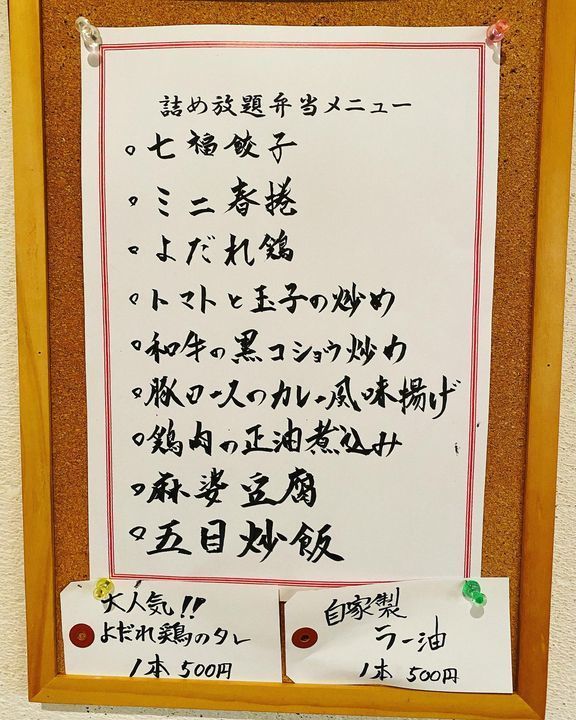 詰め放題弁当メニュー
○七福餃子
○ミニ春捲
○よだれ鶏
○トマトと玉子の炒め
○和牛の黒コショウ炒め
○豚ロースのカレー風味揚げ
○鶏肉の正油煮込み
○麻婆豆腐
○五目炒飯
大人気!!
よだれ鶏のタレ
1本 500円
自家製
ラー油
1本 500円